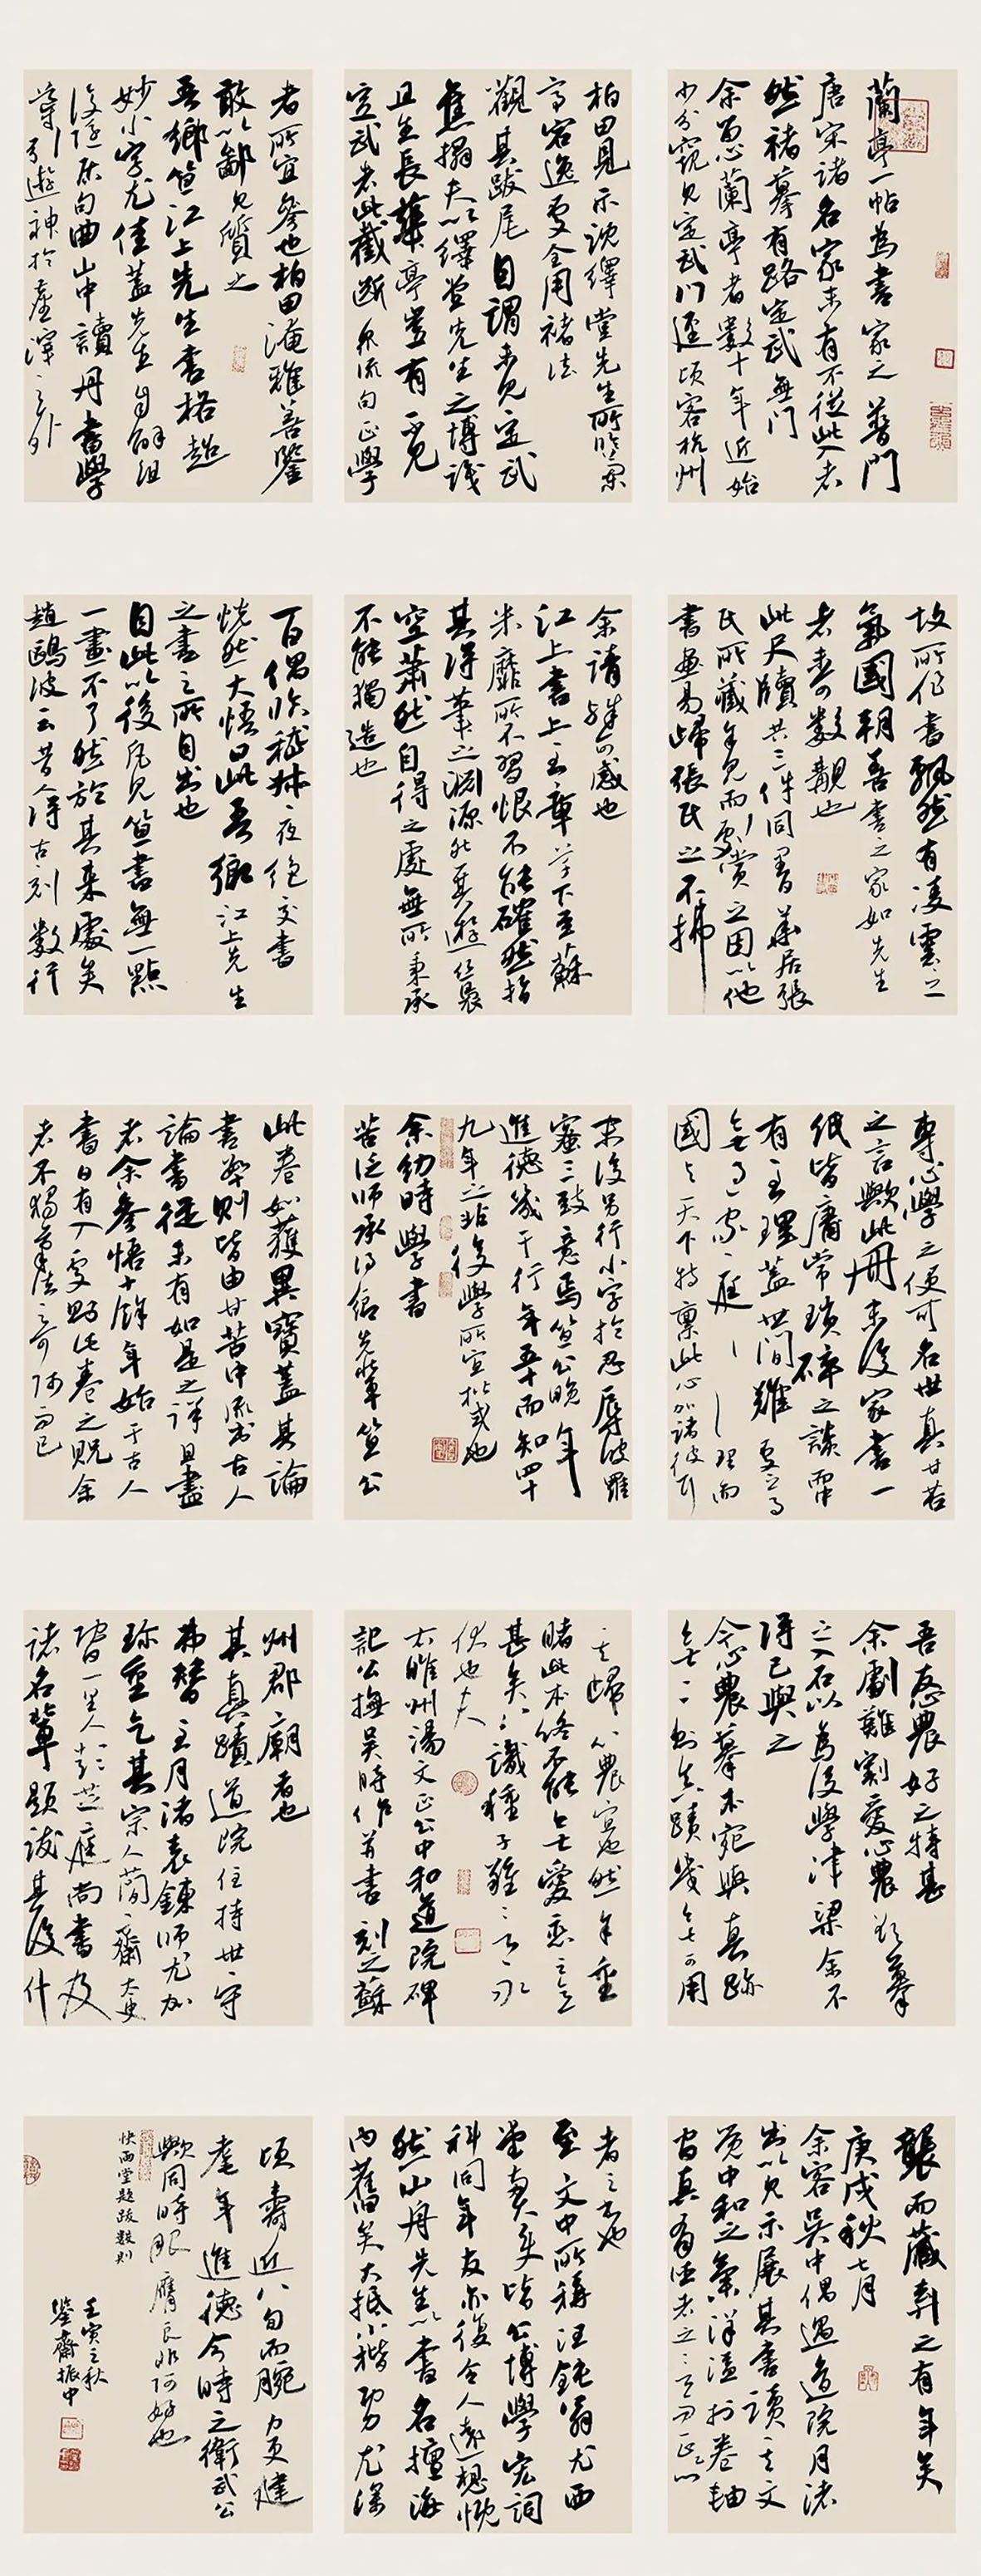 蘭亭一帖為書家之普門
唐宋諸名家未有不從此入者
然褚摹有路定武無門
余思蘭亭者數十年近始
少分窺見定武門逕頃客杭州
柏田見示沈繹堂先生所臨蘭
亭容逸處全用褚法
觀其跋尾自謂未見定武
舊搨夫以繹堂先生之博識
且生長華亭豈有不見
定武者此截斷眾流向上學
者所宜參也柏田淹雅善鑒
敢以鄙見質之
吾鄉笪江上先生書格超
妙小字尤佳蓋先生自解組
後隱居句曲山中讀丹書學
導引遊神於塵滓之外
故所作書飄然有凌雲之
氣國朝善書之家如先生
者未可數覯也
此尺牘共三件同里華居張
氏所藏余見而賞之因以他
書畫易歸張氏之不拂
余請殊可感也
江上書上至章草下至蘇
米靡所不習恨不能確然指
其得筆之淵源然其遊絲裊
空蕭然自得之處無所秉承
不能獨造也
百偶臨嵇叔夜絕交書
恍然大悟曰此吾鄉江上先生
之書之所自出也
自此以後凡見笪書無一點
一畫不了然於其來處矣
趙鷗波云昔人得古刻數行
專心學之便可名世真甘苦
之言歟此冊末後家書一
紙皆庸常瑣碎之談而中
有至理蓋世間難處之事
無過家庭
國與天下特稟此心加諸彼耳
末後另行小字於忍辱波羅
蜜三致意焉笪公晚年
進德幾于行年五十而知四十
九年之非後學所宜楷式也
余幼時學書
苦泛師承得觀先輩笪公
此卷如獲異寶蓋其論
書率則皆由甘苦中流出古人
論書從未有如是之詳且盡
者余參悟十餘年始于古人
書日有入處此卷之貺余
者不獨筆法之奇而已
吾友憩農好之特甚
余劇難割愛心農欲摹
之入石以為後學津梁余不
得已與之
心農摹本宛與真跡
無二則真蹟幾無可用
之歸心農宜也然余重
睹此本終不能無愛戀之意
甚矣識種子難之又永
伏也夫
右睢州湯文正公中和道院碑
記公撫吳時作並書刻之蘇
州郡廟者也
其真蹟道院住持世守
弗替至月渚袁鍊師尤加
珍重乞其宗人簡齋太史
暨一里人彭芝庭尚書及
諸名輩題識其後什
襲而藏弆之有年矣
庚戌秋七月
余客吳中偶過道院月渚
出以見示展其書讀其文
覺中和之氣洋溢於卷軸
者之言也
至文中所稱汪鈍翁尤西
堂與吳皆公博學宏詞
科同年友亦復令人遠想慨
然山舟先生以書名擅海
內舊矣大抵小楷功尤深
頃壽近八旬而腕力更健
耄年進德今時之衛武公
歟同時眼膺良非阿好也
快雨堂題跋數則
壬寅之秋
鑒齋振中